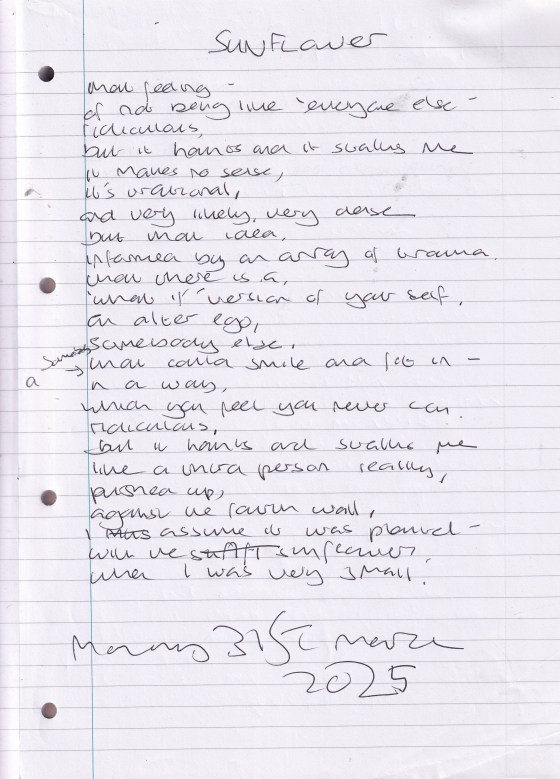 SUNFLOWER
that feeling -
of not being like 'everyone else -
ridiculous,
but it haunts and it stalks me
it makes no sense,
it's irrational,
and very likely, very dense
but that idea,
informed by an array of trauma.
that there is a,
'what if' version of your self,
an alter ego,
somebody else,
a somebody
that could smile and fit in -
in a way,
which you feel you never can.
ridiculous,
but it haunts and stalks me
like a third person really,
pushed up,
against the fourth wall,
I assume it was planted -
with the sunflower,
when I was very small.
Monday 31st March
2025